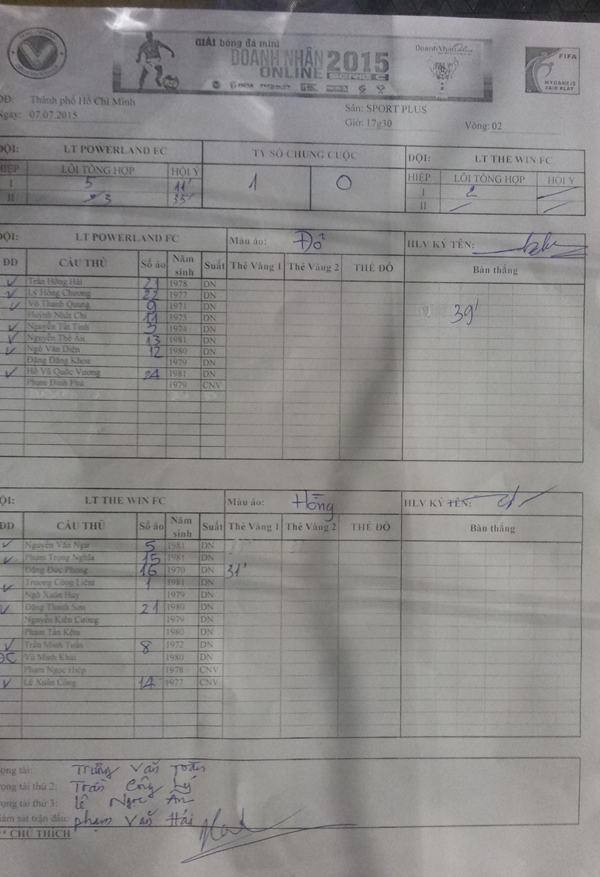 GIẢI bóng đá mini
DOANH NHÂN 2015
ONLINE SERIE C
FIFA
MY GAME IS
FAIR PLAY
Thành phố Hồ Chí Minh
Sân: SPORT PLUS
Ngày: 07.07.2015
Giờ: 17g30 Vòng: 02
ĐỘI: LT POWERLAND FC TỶ SỐ CHUNG CUỘC ĐỘI: LT THE WIN FC
HIỆP LỖI TỔNG HỢP HỘI Ý 1 0 HIỆP LỖI TỔNG HỢP HỘI Ý
I 5 11' I 2
II 3 35' II
ĐỘI: LT POWERLAND FC Màu áo: Đỏ HLV KÝ TÊN:
DD CẦU THỦ Số áo Năm sinh Suất Thẻ Vàng 1 Thẻ Vàng 2 THẺ ĐỎ Bàn thắng
Trần Hồng Hải 21 1978 DN
Lý Hồng Chương 22 1977 DN
Võ Thanh Quang 9 1971 DN 39'
Huỳnh Nhất Chi 11 1975 DN
Nguyễn Tất Tính 5 1974 DN
Nguyễn Thế Ân 13 1981 DN
Ngô Văn Diện 12 1980 DN
Đặng Đăng Khoa 1979 DN
Hồ Vũ Quốc Vương 24 1981 DN
Phạm Đình Phú 1979 CNV
ĐỘI: LT THE WIN FC Màu áo: Hồng HLV KÝ TÊN:
DD CẦU THỦ Số áo Năm sinh Suất Thẻ Vàng 1 Thẻ Vàng 2 THẺ ĐỎ Bàn thắng
Nguyễn Văn Ngự 5 1981 DN
Phạm Trọng Nghĩa 15 1981 DN
Đặng Đức Phong 16 1970 DN 31'
Trương Công Liêm 1 1981 DN
Ngô Xuân Huy 1979 DN
Đặng Thanh Sơn 21 1980 DN
Nguyễn Kiên Cường 1979 DN
Phạm Tấn Kiệm 1980 DN
Trần Minh Tuấn 8 1972 DN
Vũ Minh Khai 1980 DN
Phạm Ngọc Hiệp 1978 CNV
Lê Xuân Công 14 1977 CNV
Trọng tài: Trương Văn Toản
Trọng tài thứ 2: Trần Công Lý
Trọng tài thứ 3: Lê Ngọc Ân
Giám sát trận đấu: Phạm Văn Hải
** CHÚ THÍCH